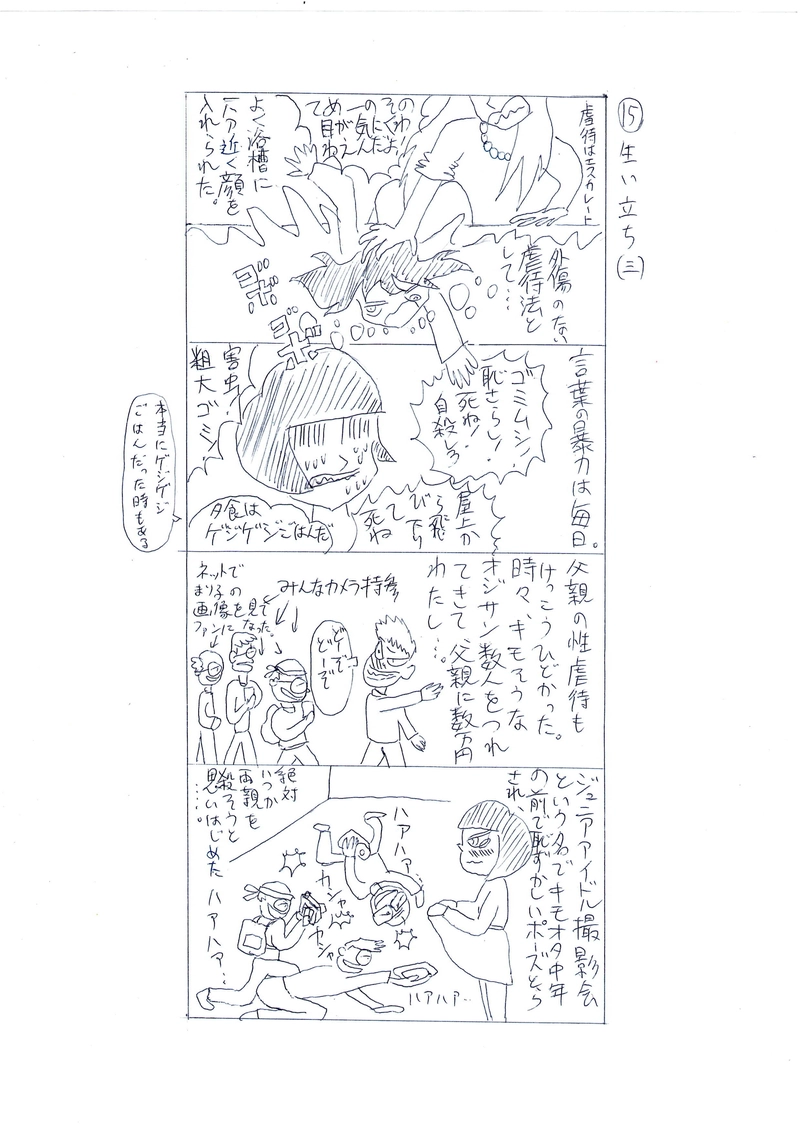 ⑮生い立ち(三)
虐待はエスカレート
そのわ!
そくだよ
の気に
一目ん
めがえ
てわ
よく浴槽に
一分近く顔を
入れられた。
外傷のない
虐待法と
して…
ゴボ
ゴボ
言葉の暴力は毎日。
ゴミムシ!
恥さらし!
死ね!
自殺しろ
害虫!
粗大ゴミ!
屋上か
ら飛
び下り
て
死ね
夕食は
ゲジゲジごはんだ
本当にゲジゲジ
ごはんだった時もある
父親の性虐待も
けっこうひどかった。
時々、キモそうな
オジサン数人をつれ
てきて父親に数万円
わたし…。
どーぞ
どーぞ
みんなカメラ持参
ネットで
まり子の
画像を見て
ファンになった。
ジュニアアイドル撮影会
という名でキモオタ中年
の前で恥ずかしいポーズとら
され、
ハアハア…
カシャ
カシャ
ハアハア…
ハアハア…
絶対
いつか
両親を
殺そうと
思いはじめた
……。